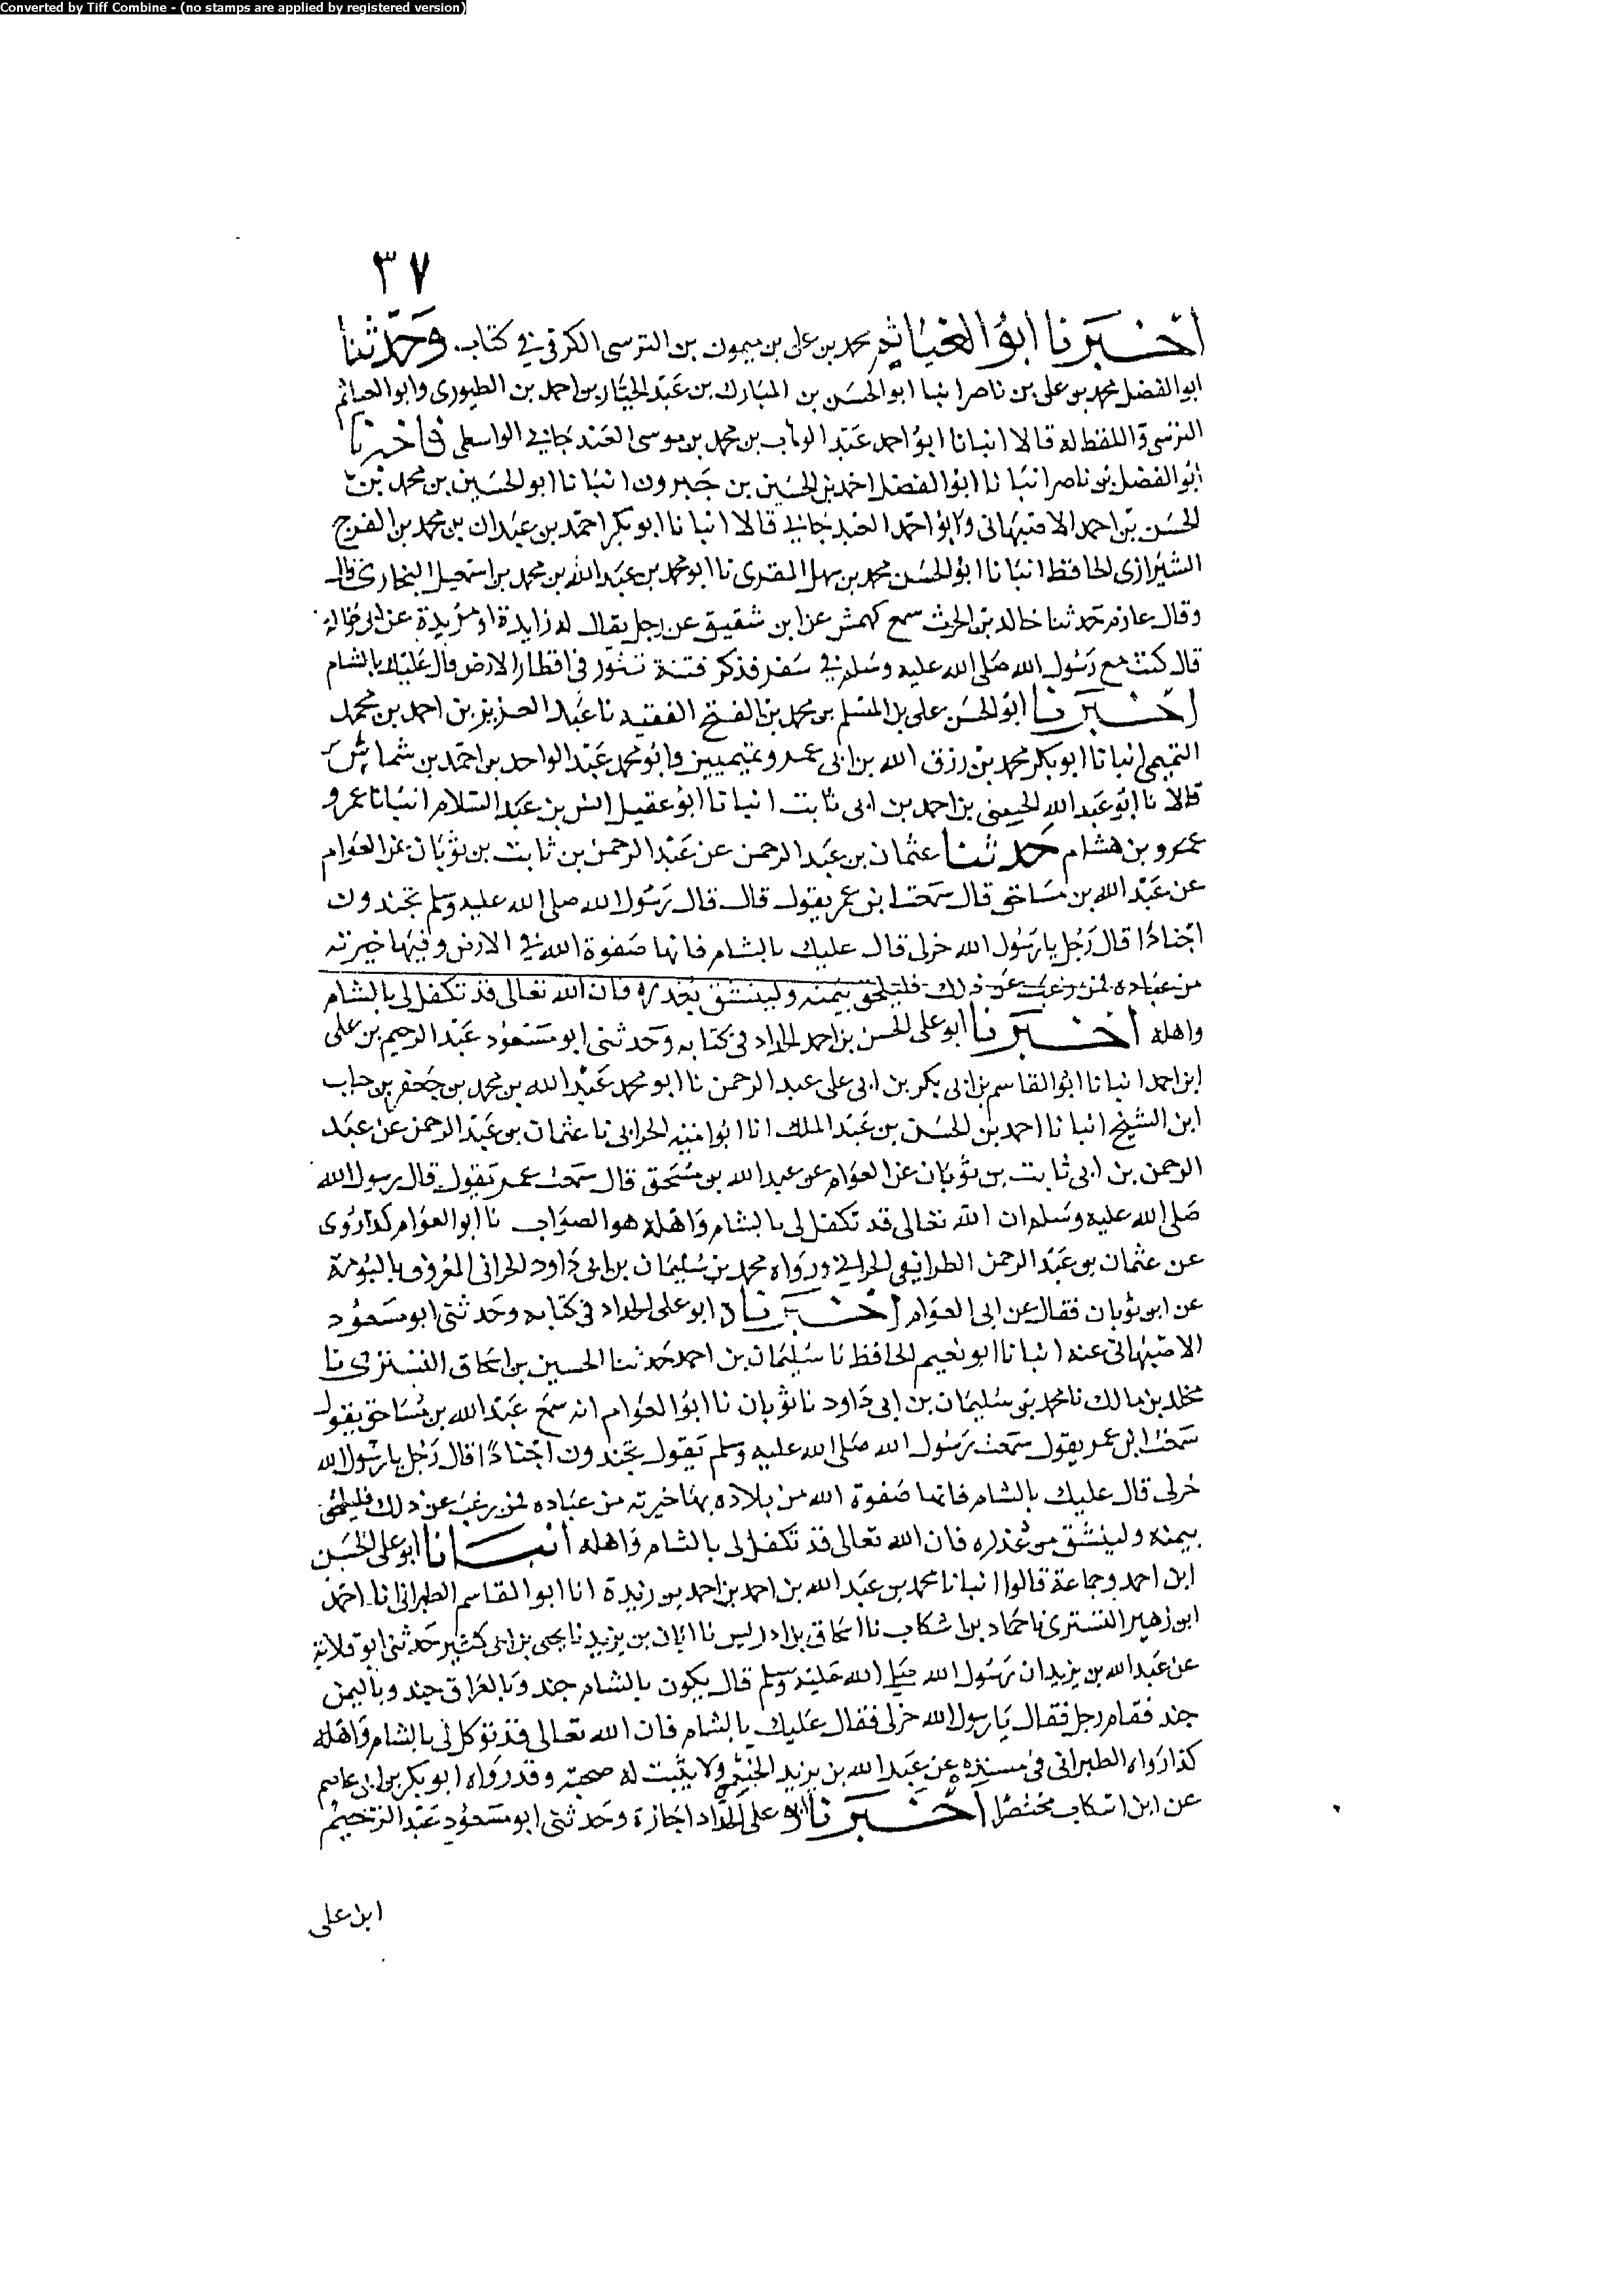 Converted by Tiff Combine - (no stamps are applied by registered version)
٣٧
اخبرنا ابو الغياثم محمد بن على بن ميمون بن النرسى الكرفى في كتاب وحدثنا
ابو الفضل محمد بن على بن ناصر انبا ابو الحسن بن المبارك بن عبد الجبار بن احمد بن الطيورى وابو العياثم
النرسى واللفظ له قالا انبانا ابو احمد عبد الوهاب بن محمد بن موسى العندجانى الواسطى فاخبرنا
ابو الفضل بن ناصر انبانا ابو الفضل احمد بن الحسين بن جيرون انبانا ابو الحسين بن محمد بن
الحسن بن احمد الاصبهانى وابو احمد العندجانى قالا انبانا ابو بكر احمد بن عبدان بن محمد بن الفرج
الشيرازى الحافظ انبانا ابو الحسن محمد بن سهل المقرى نا ابو محمد بن عبد الله بن محمد بن اسمعيل البخارى قال
وقال عازم حدثنا خالد بن الحرث سمع كهمس عن ابن شقيق عن رجل يقال له زايدة او مزيدة عن ابن حوالة
قال كنت مع رسول الله صلى الله عليه وسلم في سفر فذكر فتنة تثور فى اقطار الارض قال عليك بالشام
اخبرنا ابو الحسن على بن المسلم بن محمد بن الفتح الفقيه نا عبد العزيز بن احمد بن محمد
التميمى انبانا ابو بكر محمد بن رزق الله بن ابى عمرو وابو محمد عبد الواحد بن احمد بن شماش
قالا نا ابو عبد الله الحسين بن احمد بن ابى ثابت انبانا ابو عقيل انس بن عبد السلام انبانا عمرو
عمرو بن هشام حدثنا عثمان بن عبد الرحمن عن عبد الرحمن بن ثابت بن ثوبان عن العوام
عن عبد الله بن مساحق قال سمعت ابن عمر يقول قال قال رسول الله صلى الله عليه وسلم تجندون
اجنادا قال رجل يا رسول الله خرلى قال عليك بالشام فانها صفوة الله في الارض وفيها خيرته
من عباده فمن رغب عن ذلك فليلحق بيمنه وليستق بغدره فان الله تعالى قد تكفل لى بالشام
واهله اخبرنا ابو على الحسن بن احمد الحداد فى كتابه وحدثنى ابو مسعود عبد الرحيم بن على
ابن احمد انبانا ابو القاسم بن ابى بكر بن ابى على عبد الرحمن نا ابو محمد عبد الله بن محمد بن جعفر بن حباب
ابن الشيخ انبانا احمد بن الحسن بن عبد الملك انا ابو امية الحرانى نا عثمان بن عبد الرحمن عن عبد
الرحمن بن ابى ثابت بن ثوبان عن العوام عن عبد الله بن مستحق قال سمعت عمر يقول قال رسول الله
صلى الله عليه وسلم ان الله تعالى قد تكفل لى بالشام واهله هو الصواب نا ابو العوام كذا روى
عن عثمان بن عبد الرحمن الطرايفى الحرانى ورواه محمد بن سليمان بن ابى داود الحرانى المعروف بالبومة
عن ابن ثوبان فقال عن ابى العوام اخبرنا ابو على الحداد فى كتابه وحدثنى ابو مسعود
الاصبهانى عنه انبانا ابو نعيم الحافظ نا سليمان بن احمد حدثنا الحسين بن اسحاق التسترى نا
مخلد بن مالك نا محمد بن سليمان بن ابى داود نا ثوبان نا ابو العوام انه سمع عبد الله بن مساحق يقول
سمعت ابن عمر يقول سمعت رسول الله صلى الله عليه وسلم يقول تجندون اجنادا قال رجل يا رسول الله
خرلى قال عليك بالشام فانها صفوة الله من بلاده بها خيرته من عباده فمن رغب عن ذلك فليلحق
بيمنه وليستق من غدره فان الله تعالى قد تكفل لى بالشام واهله انبانا ابو على الحسن
ابن احمد وجماعة قالوا انبانا محمد بن عبد الله بن احمد بن احمد بن زيدة انا ابو القاسم الطبرانى نا احمد
ابن زهير التسترى نا حماد بن اشكاب نا اسحاق بن ادريس نا ابان بن يزيد نا يحيى بن ابى كثير حدثنى ابو قلابة
عن عبد الله بن يزيد ان رسول الله صلى الله عليه وسلم قال يكون بالشام جند وبالعراق جند وباليمن
جند فقام رجل فقال يا رسول الله خرلى فقال عليك بالشام فان الله تعالى قد توكل لى بالشام واهله
كذا رواه الطبرانى فى مسنده عن عبد الله بن يزيد ولا يثبت له صحبة وقد رواه ابو بكر بن ابى عاصم
عن ابن اشكاب مختصرا اخبرنا ابو على الحداد اجازة وحدثنى ابو مسعود عبد الرحيم
ابن على